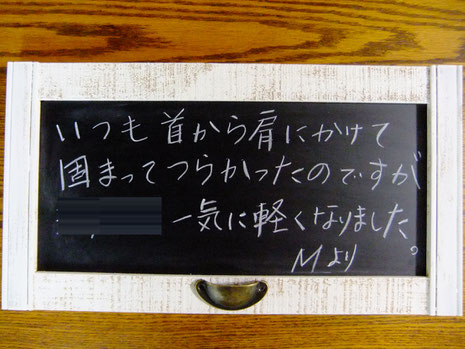 いつも首から肩にかけて
固まってつらかったのですが
一気に軽くなりました。
Mより